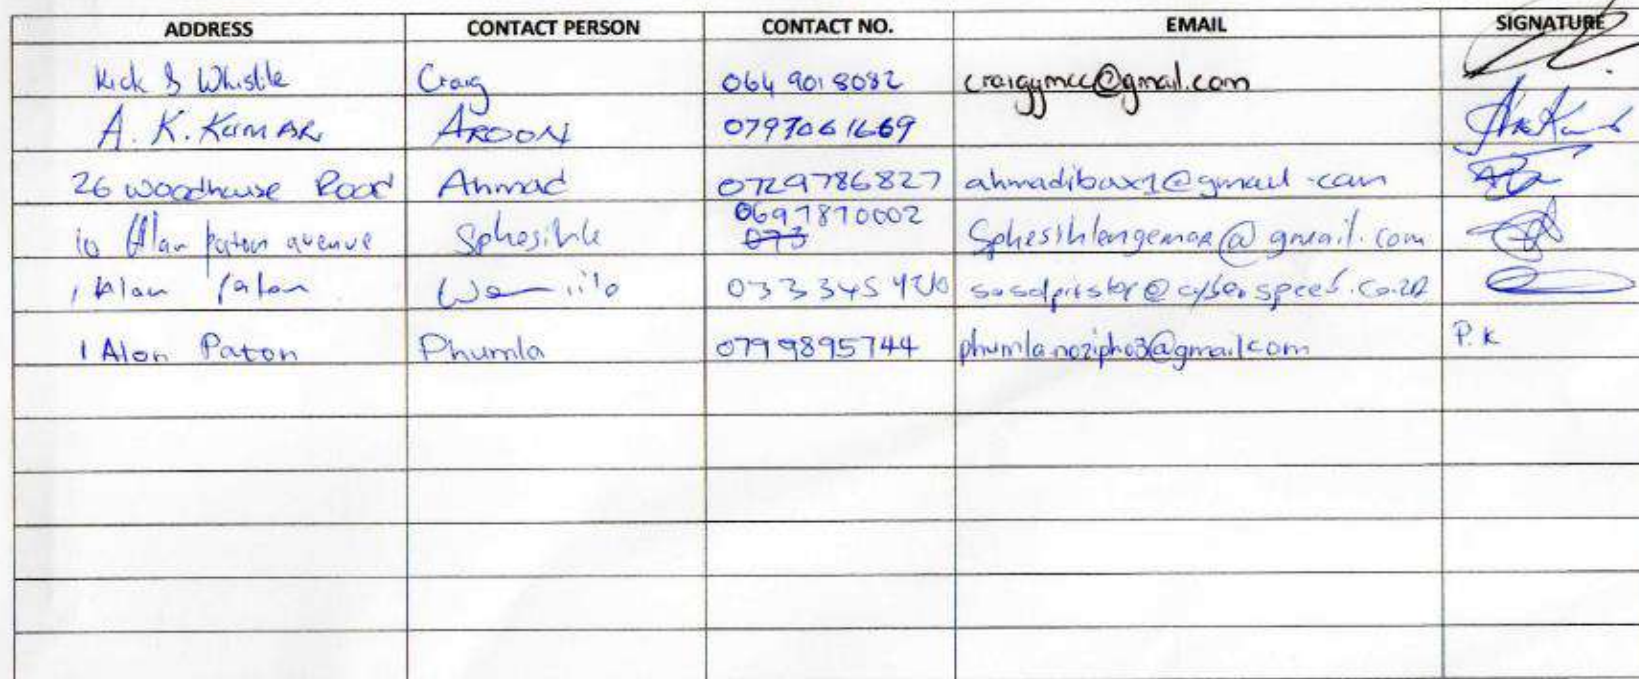 ADDRESS CONTACT PERSON CONTACT NO. EMAIL SIGNATURE
Kick & Whistle Craig 064 901 8082 craiggymcc@gmail.com
A. K. KUMAR AROON 0797061669
26 woodhouse Road Ahmad 0729786827 ahmadibax1@gmail.com
0697870002
10 Alan paton avenue Sphesihle 073 @gmail.com
1 Alan Paton 033345
1 Alan Paton Phumla 0799895744 phumlanozipho3@gmail.com P.K